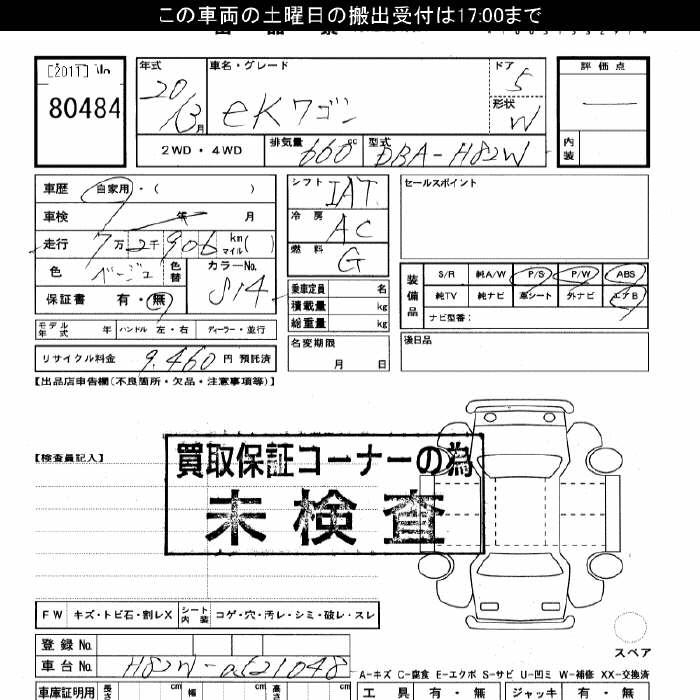 この車両の土曜日の搬出受付は17:00まで
[2011] No
80484
年式 車名・グレード ドア 評価点
20/3月 eKワゴン 5
形状 W
2WD・4WD 排気量 660cc 型式 DBA-H82W 内装
車歴 自家用・( )
車検 年 月
走行 7万2千906 km マイル( )
色 ベージュ 色替 カラーNo. S14
保証書 有・無
モデル年式 年 ハンドル 左・右 ディーラー・並行
リサイクル料金 9,460 円 預託済
シフト IAT
冷房 AC
燃料 G
乗車定員 名
積載量 kg
総重量 kg
名変期限
月 日
セールスポイント
装備品 S/R 純A/W P/S P/W ABS
純TV 純ナビ 革シート 外ナビ エアB
ナビ型番:
後日品
【出品店申告欄(不良箇所・欠品・注意事項等)】
【検査員記入】
買取保証コーナーの為
未検査
FW キズ・トビ石・割レX シート内装 コゲ・穴・汚レ・シミ・破レ・スレ
スペア
登録No.
車台No. H82W-0621048
A-キズ C-腐食 E-エクボ S-サビ U-凹ミ W-補修 XX-交換済
車庫証明用 長さ cm 幅 cm 高さ cm 工具 有・無 ジャッキ 有・無